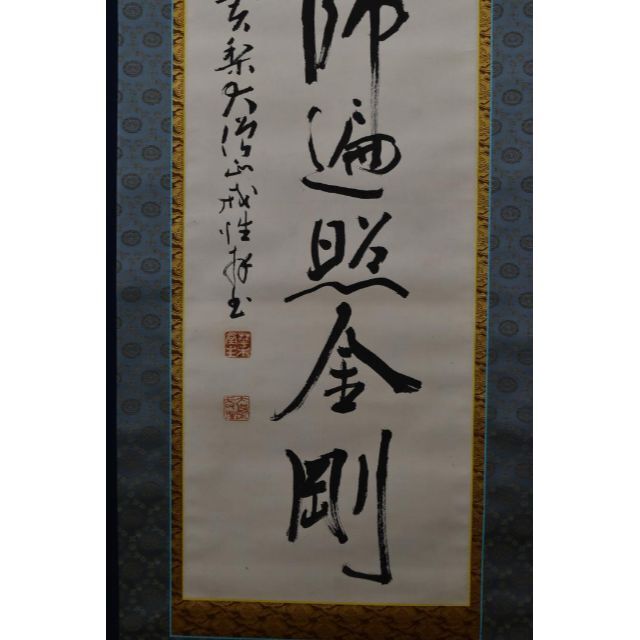 師遍照金剛
梨大僧正戒性拝書